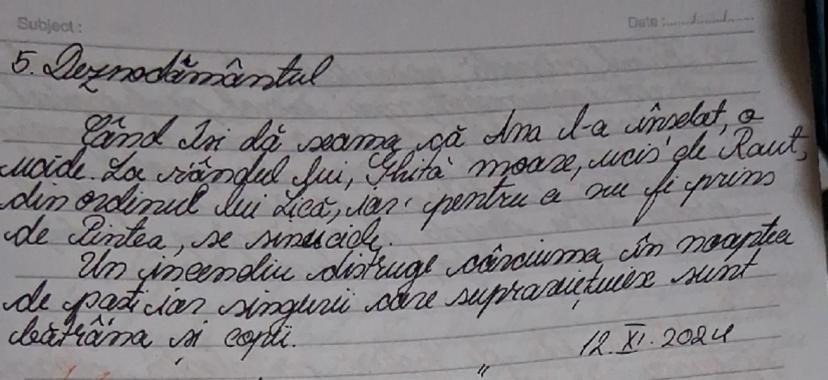 Subject: Date:....../....../......
5. Deznodământul
Când își dă seama că Ana l-a înșelat, o
ucide. La rândul lui, Ghiță moare, ucis de Raut,
din ordinul lui Lică, iar pentru a nu fi prins
de Pintea, se sinucide.
Un incendiu distruge cârciuma în noaptea
de paști iar singurii care supraviețuiesc sunt
bătrâna și copii.
12.XI.2024